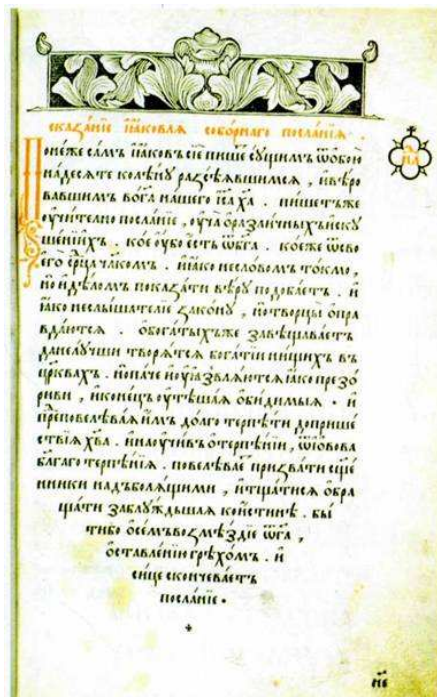 сказанїе їꙗковлѧ соборнаго посланїѧ.
Понеже самъ їꙗковъ сїе пише сꙋщимъ ѿобою
надесѧте колѣнꙋ разсѣѧвшимсѧ, ивѣро
вавшимъ вога нашего їса ха. пишетъже
ꙋчително посланїе, ꙋча оразличныхъ искꙋ
шенїихъ. кое ꙋбо есть ѿбга. коеже ѿсво
его срца члкомъ. иꙗко несловомъ токмо,
но идѣломъ показати вѣрꙋ подобаетъ. и
ꙗко неслышателїе законꙋ, нотворцы опра
вдаютсѧ. обогатыхъже завѣщаваетъ
данелꙋчши творѧтсѧ богатїи нищихъ въ
црквахъ. ипаче ноꙋꙗзвлѧютсѧ ꙗко презо
риви, иконецъ ꙋтѣшаѧ обидимыѧ. и
преповелѣваѧ имъ долго терпѣти доприше
ствїѧ хва. инаꙋчивъ отерпѣнїи, ѿїовова
благаго терпѣнїѧ. повелѣвае призвати сще
нники надъболѧщими, итщатисѧ обра
щати заблꙋждьшаѧ коистинѣ. бы
тибо осемъ возмѣздїе ѿга,
оставленїю грѣхомъ. и
сице скончеваетъ
посланїе.
на